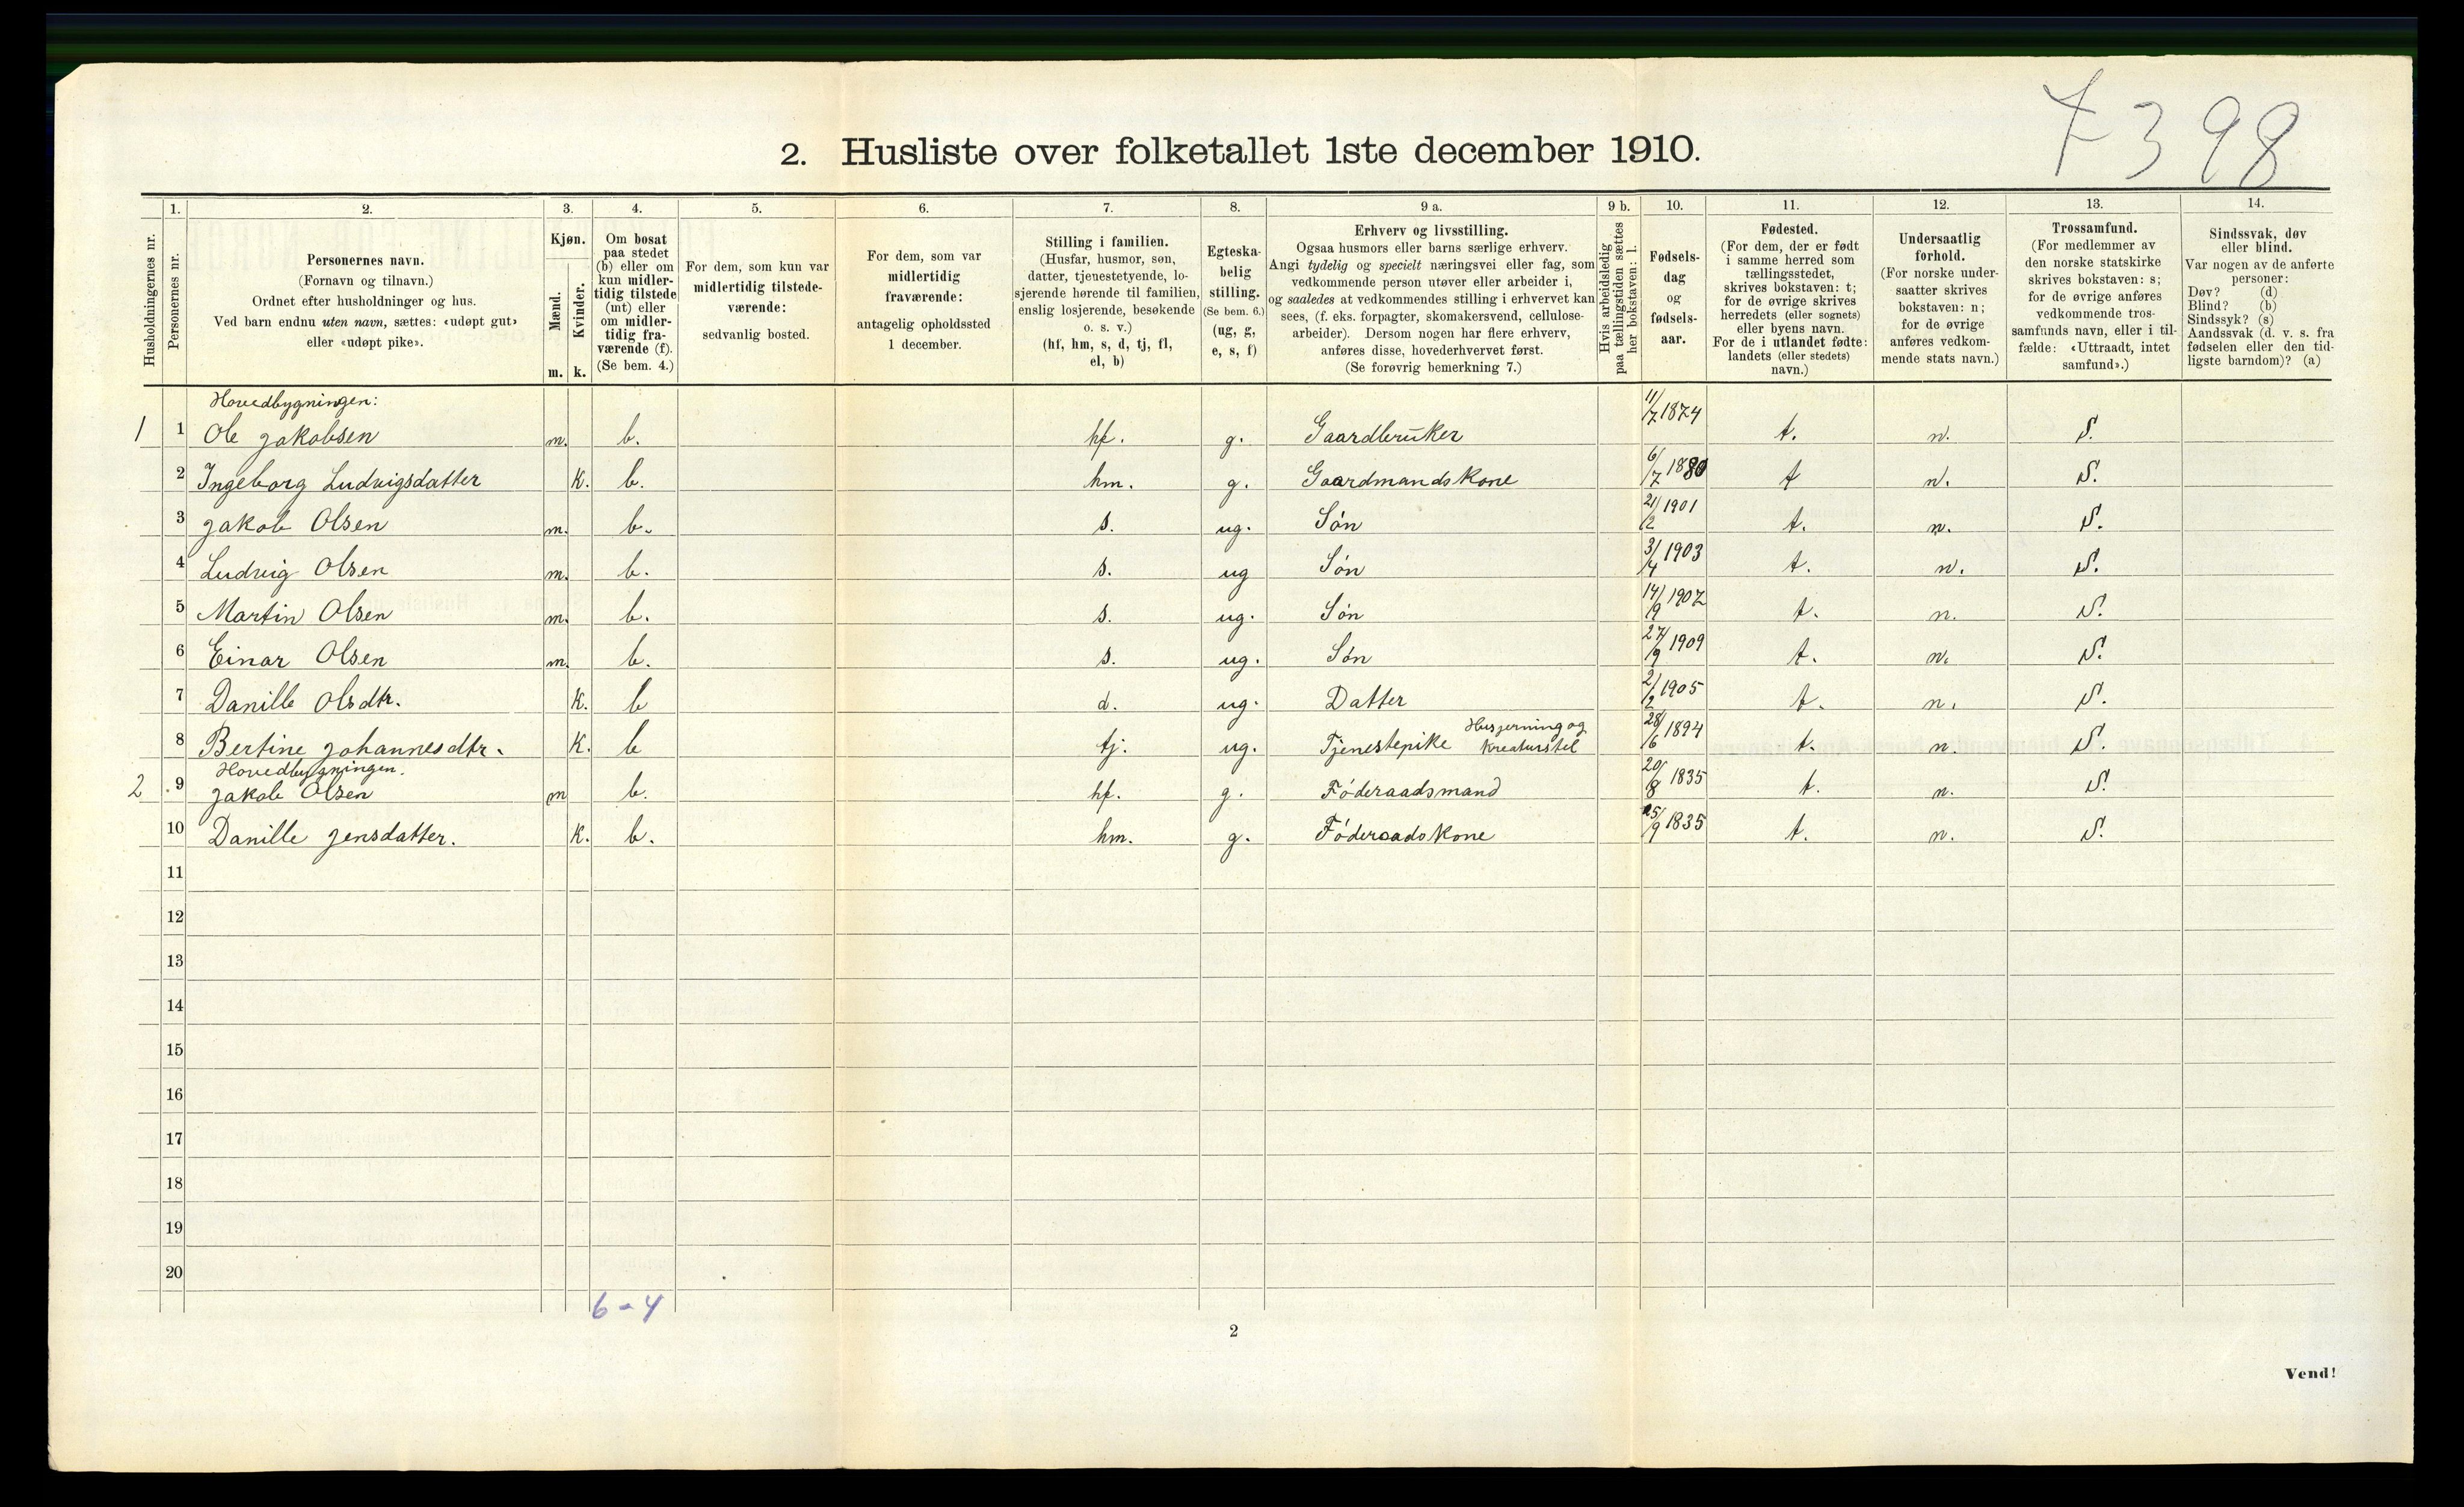 7398
2. Husliste over folketallet 1ste december 1910.
Husholdningernes nr.
1. Personernes nr.
2. Personernes navn.
(Fornavn og tilnavn.)
Ordnet efter husholdninger og hus.
Ved barn endnu uten navn, sættes: «udøpt gut»
eller «udøpt pike».
3. Kjøn.
Mænd. Kvinder.
m. k.
4. Om bosat
paa stedet
(b) eller om
kun midler-
tidig tilstede
(mt) eller
om midler-
tidig fra-
værende (f).
(Se bem. 4.)
5. For dem, som kun var
midlertidig tilstede-
værende:
sedvanlig bosted.
6. For dem, som var
midlertidig
fraværende:
antagelig opholdssted
1 december.
7. Stilling i familien.
(Husfar, husmor, søn,
datter, tjenestetyende, lo-
sjerende hørende til familien,
enslig losjerende, besøkende
o. s. v.)
(hf, hm, s, d, tj, fl,
el, b)
8. Egteska-
belig
stilling.
(Se bem. 6.)
(ug, g,
e, s, f)
9 a. Erhverv og livsstilling.
Ogsaa husmors eller barns særlige erhverv.
Angi tydelig og specielt næringsvei eller fag, som
vedkommende person utøver eller arbeider i,
og saaledes at vedkommendes stilling i erhvervet kan
sees, (f. eks. forpagter, skomakersvend, cellulose-
arbeider). Dersom nogen har flere erhverv,
anføres disse, hovederhvervet først.
(Se forøvrig bemerkning 7.)
9 b. Hvis arbeidsledig
paa tællingstiden sættes
her bokstaven: l.
10. Fødsels-
dag
og
fødsels-
aar.
11. Fødested.
(For dem, der er født
i samme herred som
tællingsstedet,
skrives bokstaven: t;
for de øvrige skrives
herredets (eller sognets)
eller byens navn.
For de i utlandet fødte:
landets (eller stedets)
navn.)
12. Undersaatlig
forhold.
(For norske under-
saatter skrives
bokstaven: n;
for de øvrige
anføres vedkom-
mende stats navn.)
13. Trossamfund.
(For medlemmer av
den norske statskirke
skrives bokstaven: s;
for de øvrige anføres
vedkommende tros-
samfunds navn, eller i til-
fælde: «Uttraadt, intet
samfund».)
14. Sindssvak, døv
eller blind.
Var nogen av de anførte
personer:
Døv? (d)
Blind? (b)
Sindssyk? (s)
Aandssvak (d. v. s. fra
fødselen eller den tid-
ligste barndom)? (a)
Hovedbygningen:
1 1 Ole Jakobsen m. b. hf. g. Gaardbruker 11/7 1874 t. n. S.
2 Ingeborg Ludvigsdatter k. b. hm. g. Gaardmandskone 6/7 1880 t n. S.
3 Jakob Olsen m. b. s. ug. Søn 21/2 1901 t. n. S.
4 Ludvig Olsen m. b. s. ug Søn 3/4 1903 t. n. S.
5 Martin Olsen m. b. s. ug. Søn 14/9 1907 t. n. S.
6 Einar Olsen m. b. s. ug. Søn 27/9 1909 t. n. S.
7 Danille Olsdtr. k. b d. ug. Datter 2/2 1905 t. n. S.
8 Bertine Johannesdtr. k. b tj. ug. Tjenestepike Husgerning og Kreaturstel 28/6 1894 t. n. S.
Hovedbygningen.
2 9 Jakob Olsen m b. hf. g. Føderaadsmand 20/8 1835 t. n. S.
10 Danille Jensdatter. k. b. hm. g. Føderaadskone 25/9 1835 t. n. S.
11
12
13
14
15
16
17
18
19
20
6-4
2
Vend!